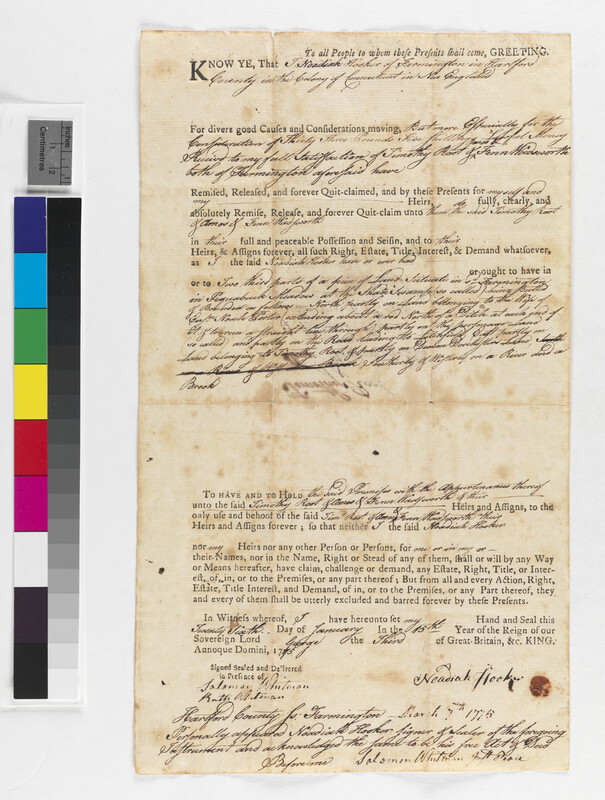 Inches
Centimetres
1
2
To all People to whom these Presents shall come, GREETING.
KNOW YE, That I Noadiah Hooker of Farmington in Hartford
County in the Colony of Connecticut in New England
For divers good Causes and Considerations moving, But more Especially for the
Consideration of Thirty Three Pounds Five shillings Lawful Money
Recd to my full Satisfaction of Timothy Root & Fenn Wadsworth
both of Farmington aforesaid have
Remised, Released, and forever Quit-claimed, and by these Presents for myself and
my Heirs, do fully, clearly, and
absolutely Remise, Release, and forever Quit-claim unto them the said Timothy Root
& Amos & Fenn Wadsworth
in their full and peaceable Possession and Seisin, and to their
Heirs, & Assigns forever, all such Right, Estate, Title, Interest, & Demand whatsoever,
as I the said Noadiah Hooker have or ever had
or ought to have in
or to Two third parts of a piece of Land Situate in sd Farmington
in Pequabuck Meadow at the Swamp so called, being Butted
& Bounded as follows North partly on Land belonging to the
Capt Noah extending about a rod North of a Ditch at each end of
a straight Line through, partly on
so called and partly on the Road leading East partly on
Land belonging to Timothy Root & partly on
Southerly & Westerly on a River and a
Brook
TO HAVE AND TO HOLD the said Premises with the Appurtenances thereof
unto the said Timothy Root & Amos & Fenn Wadsworth & their Heirs and Assigns, to the
only use and behoof of the said Timo Root & Amos & Fenn Wadsworth their
Heirs and Assigns forever; so that neither I the said Noadiah Hooker
nor my Heirs nor any other Person or Persons, for me or in my or
their Names, nor in the Name, Right or Stead of any of them, shall or will by any Way
or Means hereafter, have claim, challenge or demand, any Estate, Right, Title, or Inter-
est, of, in, or to the Premises, or any part thereof; But from all and every Action, Right,
Estate, Title Interest, and Demand, of, in, or to the Premises, or any Part thereof, they
and every of them shall be utterly excluded and barred forever by these Presents.
In Witness whereof, I have hereunto set my Hand and Seal this
Twenty Sixth Day of January In the 15th Year of the Reign of our
Sovereign Lord George the Third of Great-Britain, &c. KING.
Annoque Domini, 1775
Signed Sealed and Delivered
in Presence of
Noadiah Hooker
Solomon Whitman
Ruth Whitman
Hartford County ss Farmington March 7th 1775
Personally appeared Noadiah Hooker signer & sealer of the foregoing
Instrument and acknowledged the same to be his free Act & Deed
Before me Solomon Whitman Just Peace